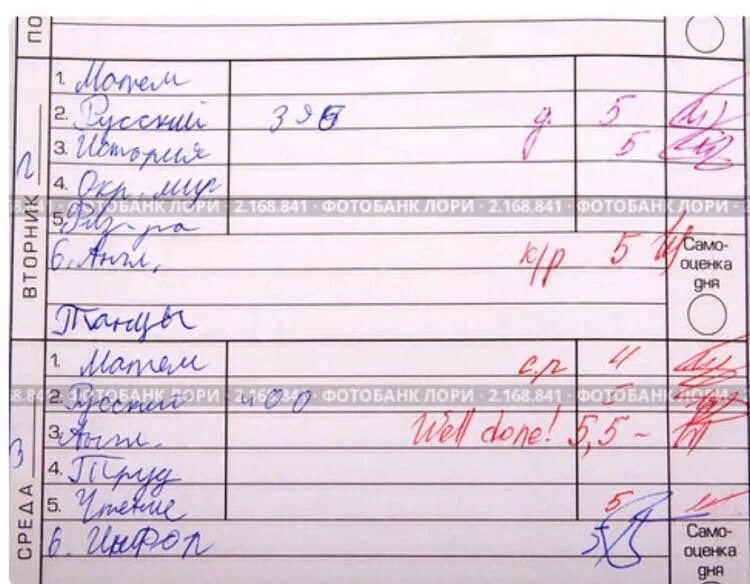 ПО
ВТОРНИК 2
1. Матем
2. Русский 395 д. 5
3. История 5
4. Окр. мир
ФОТОБАНК ЛОРИ · 2.168.841 · ФОТОБАНК ЛОРИ · 2.168.841 · ФОТОБАНК ЛОРИ
5. Физ-ра
6. Англ. к/р 5
Само-
оценка
дня
Танцы
СРЕДА 3
1. Матем с.р 4
8.841 · ФОТОБАНК ЛОРИ · 2.168.841 · ФОТОБАНК ЛОРИ · 2.168.841 · ФОТОБАНК ЛОРИ
2. Русский 400 5
3. Англ. Well done! 5,5 -
4. Труд
5. Чтение 5
6. Инфор 5
Само-
оценка
дня